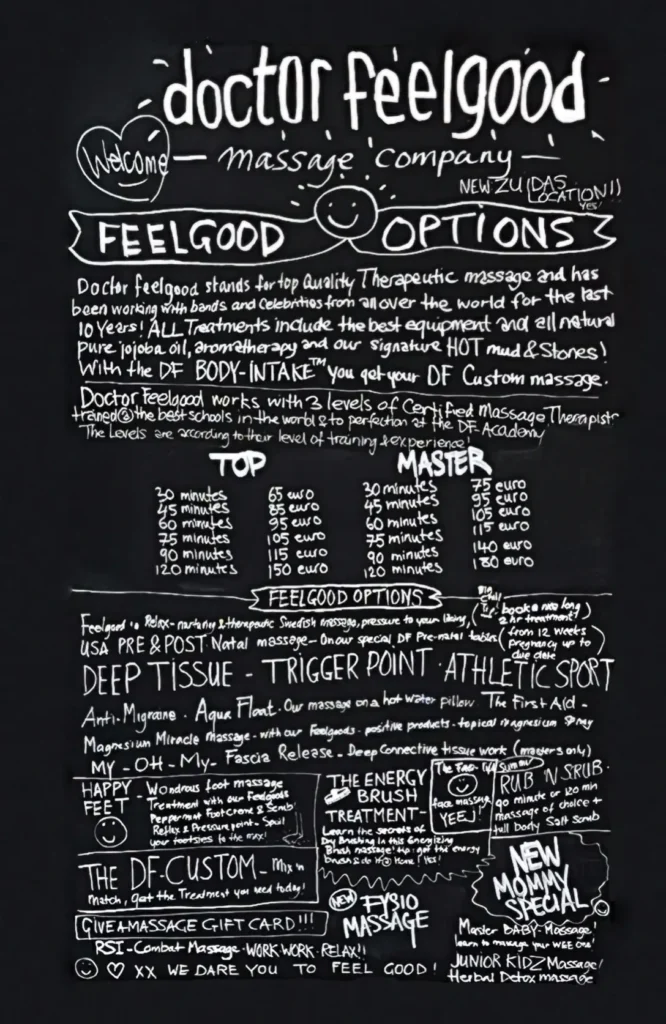 doctor feelgood
Welcome
massage company
NEW ZUIDAS
LOCATION!!
YES!
FEELGOOD OPTIONS
Doctor feelgood stands for top Quality Therapeutic massage and has
been working with bands and Celebrities from all over the world for the last
10 Years! ALL Treatments include the best equipment and all natural
pure jojoba oil, aromatherapy and our signature HOT mud & Stones!
With the DF BODY-INTAKE™ you get your DF Custom massage.
Doctor Feelgood works with 3 levels of Certified Massage Therapist
trained @ the best schools in the world & to perfection at the DF Academy
The Levels are according to their level of training & experience!
TOP
30 minutes 65 euro
45 minutes 85 euro
60 minutes 95 euro
75 minutes 105 euro
90 minutes 115 euro
120 minutes 150 euro
MASTER
30 minutes 75 euro
45 minutes 95 euro
60 minutes 105 euro
75 minutes 115 euro
90 minutes 140 euro
120 minutes 180 euro
FEELGOOD OPTIONS
Feelgood is Relax- nurturing & therapeutic Swedish massage, pressure to your liking,
Big
Chill
book a nice long
2 hr treatment!
USA PRE & POST Natal massage- On our special DF Pre-natal tables
(from 12 weeks
pregnancy up to
due date
DEEP TISSUE - TRIGGER POINT · ATHLETIC SPORT
Anti-Migraine · Aqua Float · Our massage on a hot water pillow · The First Aid -
Magnesium Miracle Massage - with our Feelgoods - positive products - topical magnesium Spray
MY - OH - My - Fascia Release - Deep Connective tissue work (masters only)
HAPPY
FEET
- Wondrous foot massage
Treatment with our Feelgoods
Peppermint Footcreme & Scrub!
Reflex & Pressure point - Spoil
your footsies to the max!
THE ENERGY
BRUSH
TREATMENT -
Learn the secrets of
Dry Brushing in this Energizing
Brush massage
brush & do it @ Home! Yes!
face massage
YEEJ!
RUB 'N SCRUB
90 minute or 120 min
massage of choice +
full body Salt Scrub
THE DF-CUSTOM - Mix 'n
match, get the Treatment you need today!
NEW
MOMMY
SPECIAL
GIVE A MASSAGE GIFT CARD!!!
NEW FYSIO
MASSAGE
Master BABY-Massage!
learn to massage your WEE one!
RSI - Combat Massage · WORK WORK · RELAX!!
JUNIOR KIDZ Massage!
XX WE DARE YOU TO FEEL GOOD!
Herbal Detox massage